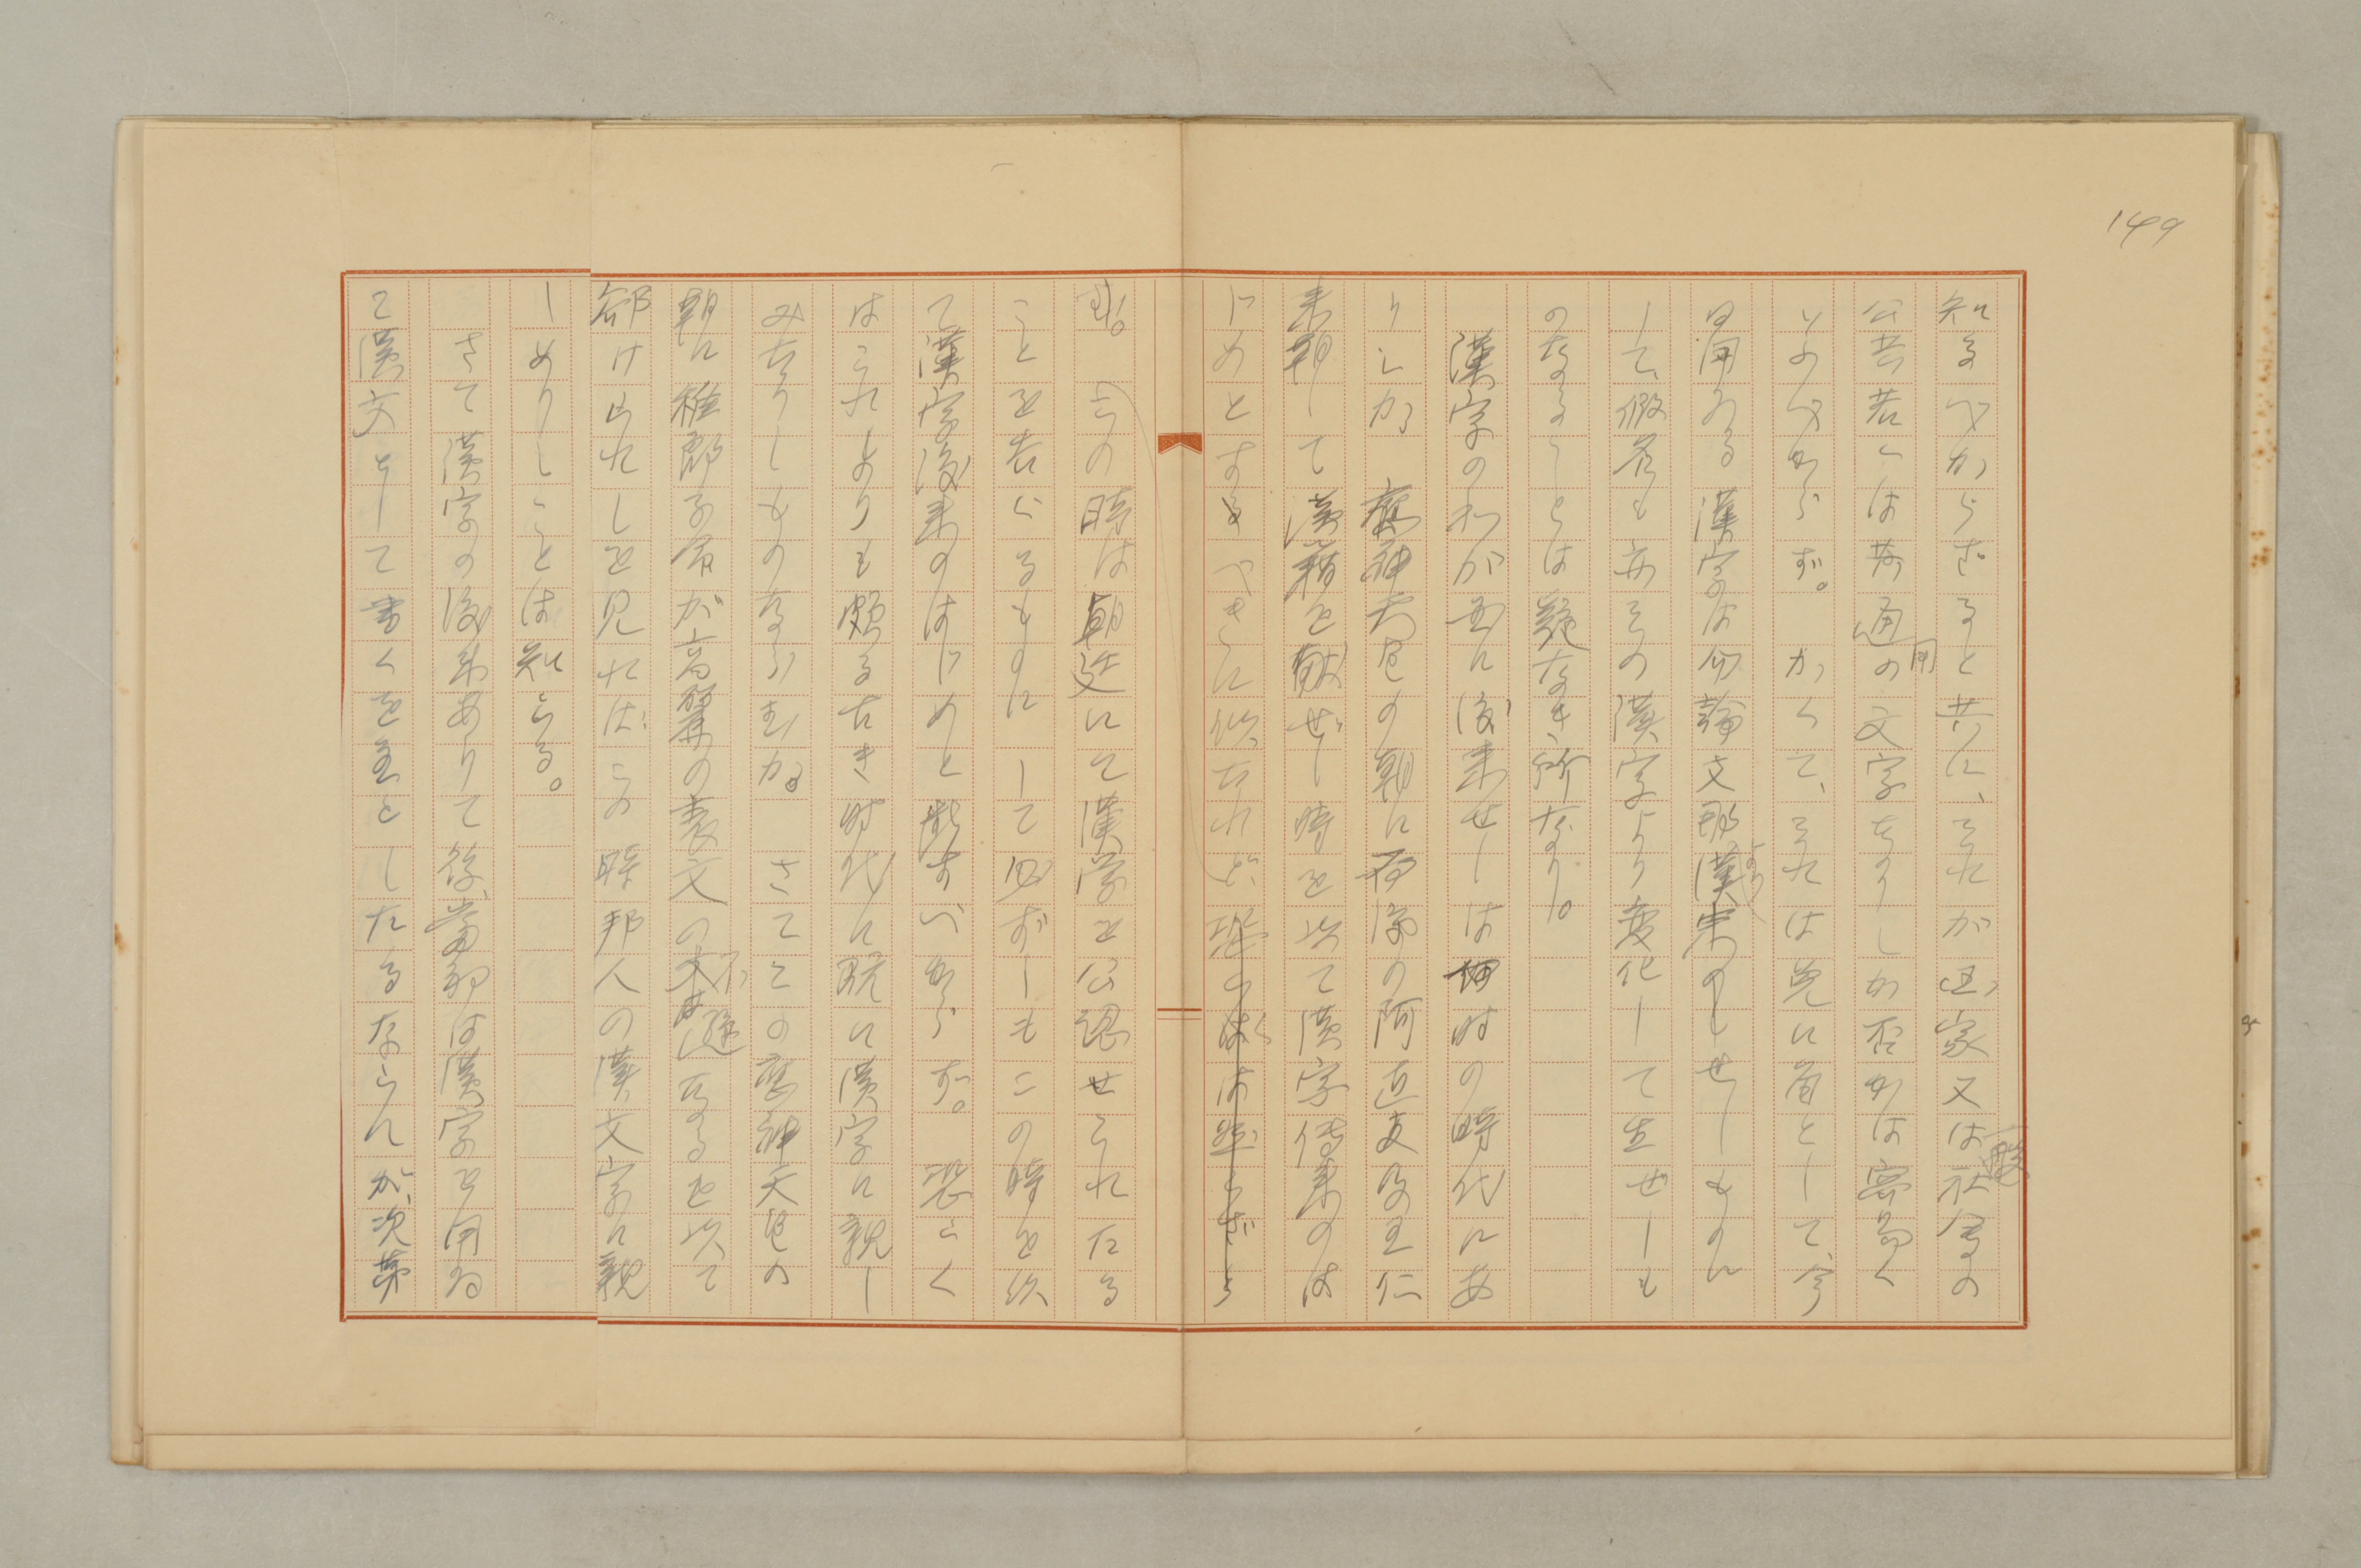 149
知るべからざると共に、それが国家又は社会の一般
公共若くは普通用の文字なりしか否かは容易く
いふべからず。かくて、それは先に首として、今
日用ゐる漢字は勿論支那より渡来のせしものに
して、假名も亦その漢字より変化して生ぜしも
のなることは疑なき所なり。
漢字のわが国に渡来せしは何時の時代にあ
りしか。應神天皇の朝に百済の阿直支及王仁
来朝して漢籍を献ぜし時を以て漢字傳来のは
じめとすべきに似たれど、恐らくは然らざら
む。この時は朝廷にて漢学を公認せられたる
ことを告ぐるものにして必ずしもこの時を以
て漢字渡来のはじめと断ずべからず。恐らく
はこれよりも頗る古き時代に既に漢字に親し
みたりしものならむか。さてこの應神天皇の
朝に稚郎子命が高麗の表文の不遜なるを以て
却けられしを見ればこの時邦人の漢文字に親
しめりしことは知らる。
さて漢字の渡来ありて後、當初は漢字を用ゐ
て漢文として書くを主としたるならんが、次第